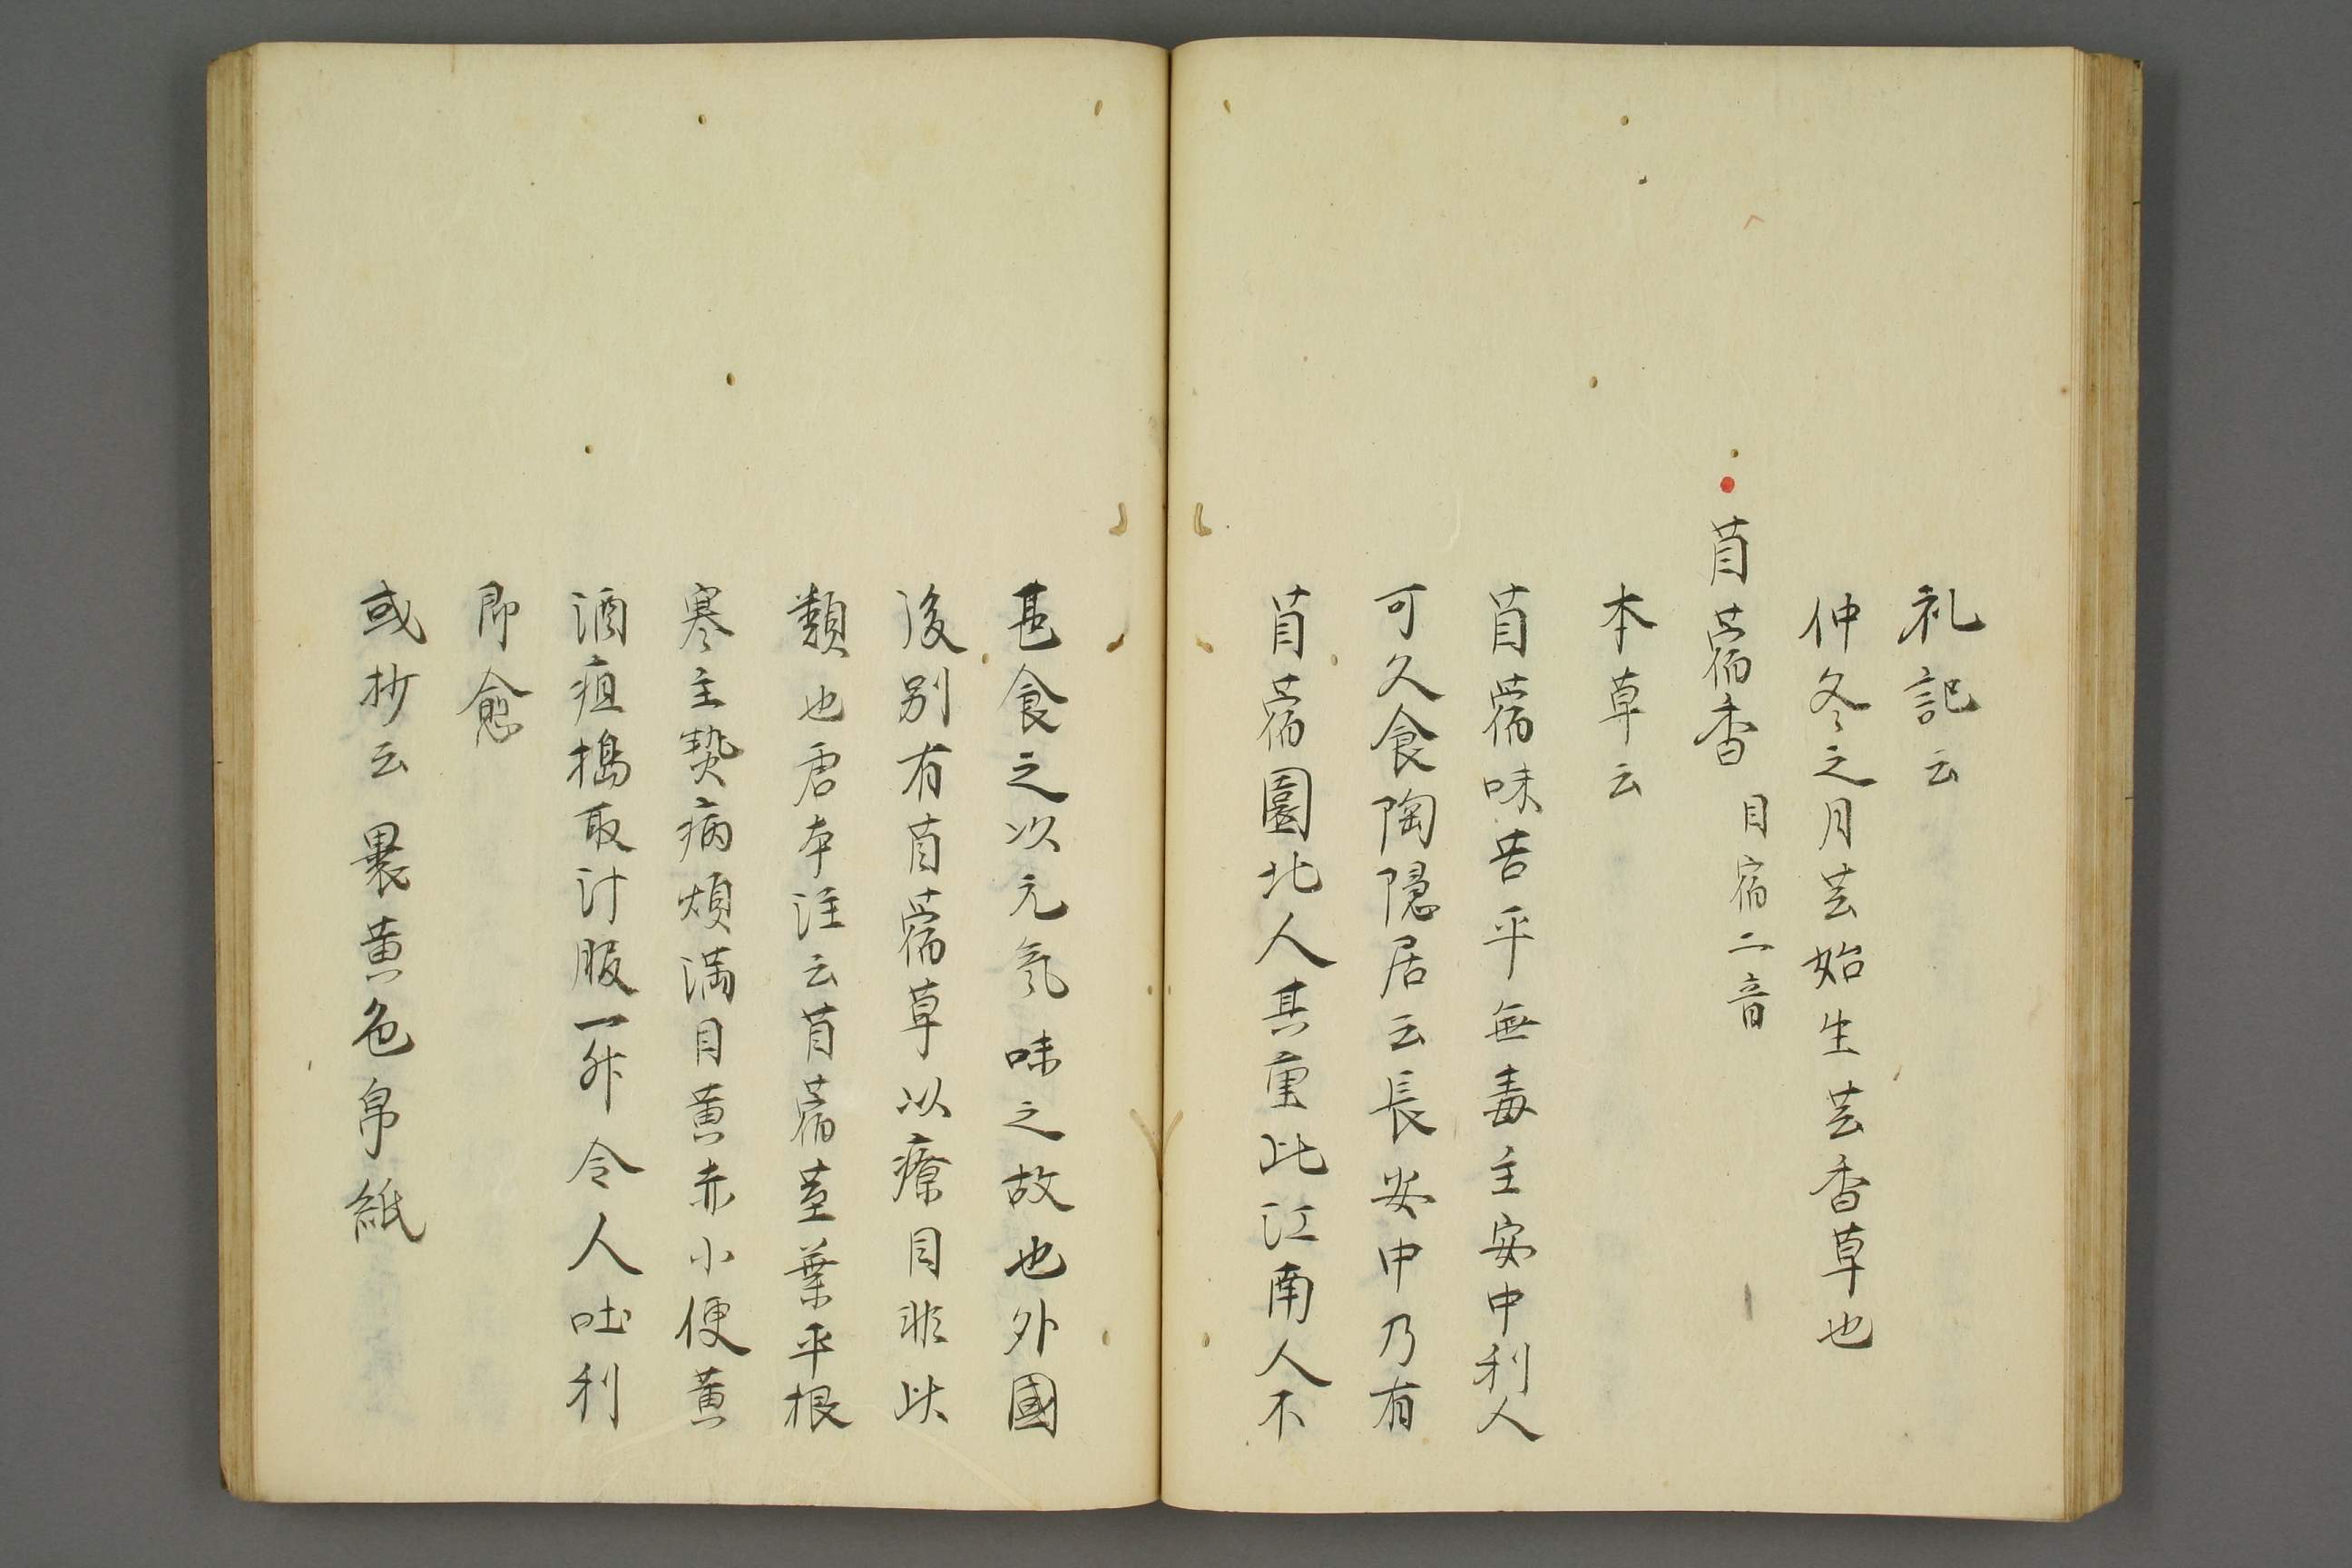 礼記云
仲冬之月芸始生芸香草也
苜蓿香 目宿二音
本草云
苜蓿味苦平無毒主安中利人
可久食陶隠居云長安中乃有
苜蓿園北人甚重此江南人不
甚食之以元氣味之故也外國
後別有苜蓿草以療目非此
類也唐本注云苜蓿莖葉平根
寒主熱病煩満目黄赤小便黄
酒疸搗取汁服一升令人吐利
即愈
或抄云 褁黄色帛紙